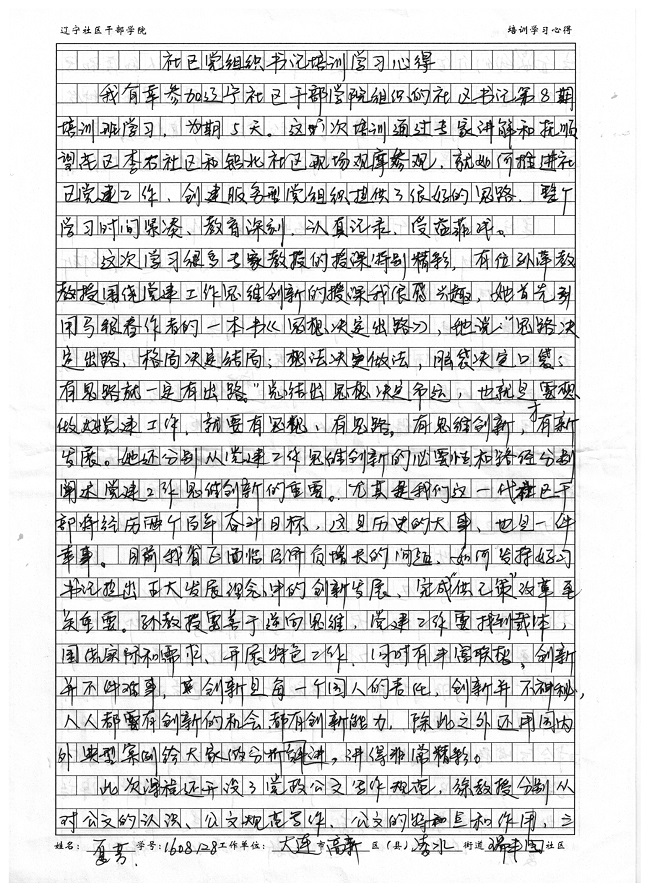 辽宁社区干部学院 培训学习心得
社区党组织书记培训学习心得
我有幸参加辽宁社区干部学院组织的社区书记第8期
培训班学习，为期5天，这次培训通过专家讲解和抚顺
望花区李石社区和站北社区现场观摩参观，就如何推进社
区党建工作，创建服务型党组织提供了很好的思路，整个
学习时间紧凑、教育深刻、认真记录、受益菲浅。
这次学习很多专家教授的授课特别精彩，有位孙萍教
教授围绕党建工作思维创新的授课我很感兴趣，她首先引
用马银春作者的一本书《思想决定出路》，她说："思路决
定出路，格局决定结局；想法决定做法，脑袋决定口袋；
有思路就一定有出路。"总结出思想决定命运，也就是要想
做好党建工作，就要有思想、有思路，有思维创新，才有新
发展。她还分别从党建工作思维创新的必要性和路径分别
阐述党建工作思维创新的重要。尤其是我们这一代社区干
部将经历两个百年奋斗目标，这是历史的大事，也是一件
幸事。目前我省正面临经济负增长的问题，如何发挥好习
书记提出五大发展理念中的创新发展，完成"供己策"改革至
关重要。孙教授要善于逆向思维，党建工作要找到载体，
围优实际和需求，开展特色工作，同时有丰富联想，创新
并不件难事，创新是每一个国人的责任，创新并不神秘，
人人都要有创新的机会都有创新能力，除此之外还用国内
外典型案例给大家做分析讲进，讲得非常精彩。
此次课程还开设了党政公文写作规范，徐教授分别从
对公文的认识、公文规范写作、公文的特点和作用，三
姓名：夏芳 学号：1608128 工作单位：大连市高新区（县）凌水街道 社区